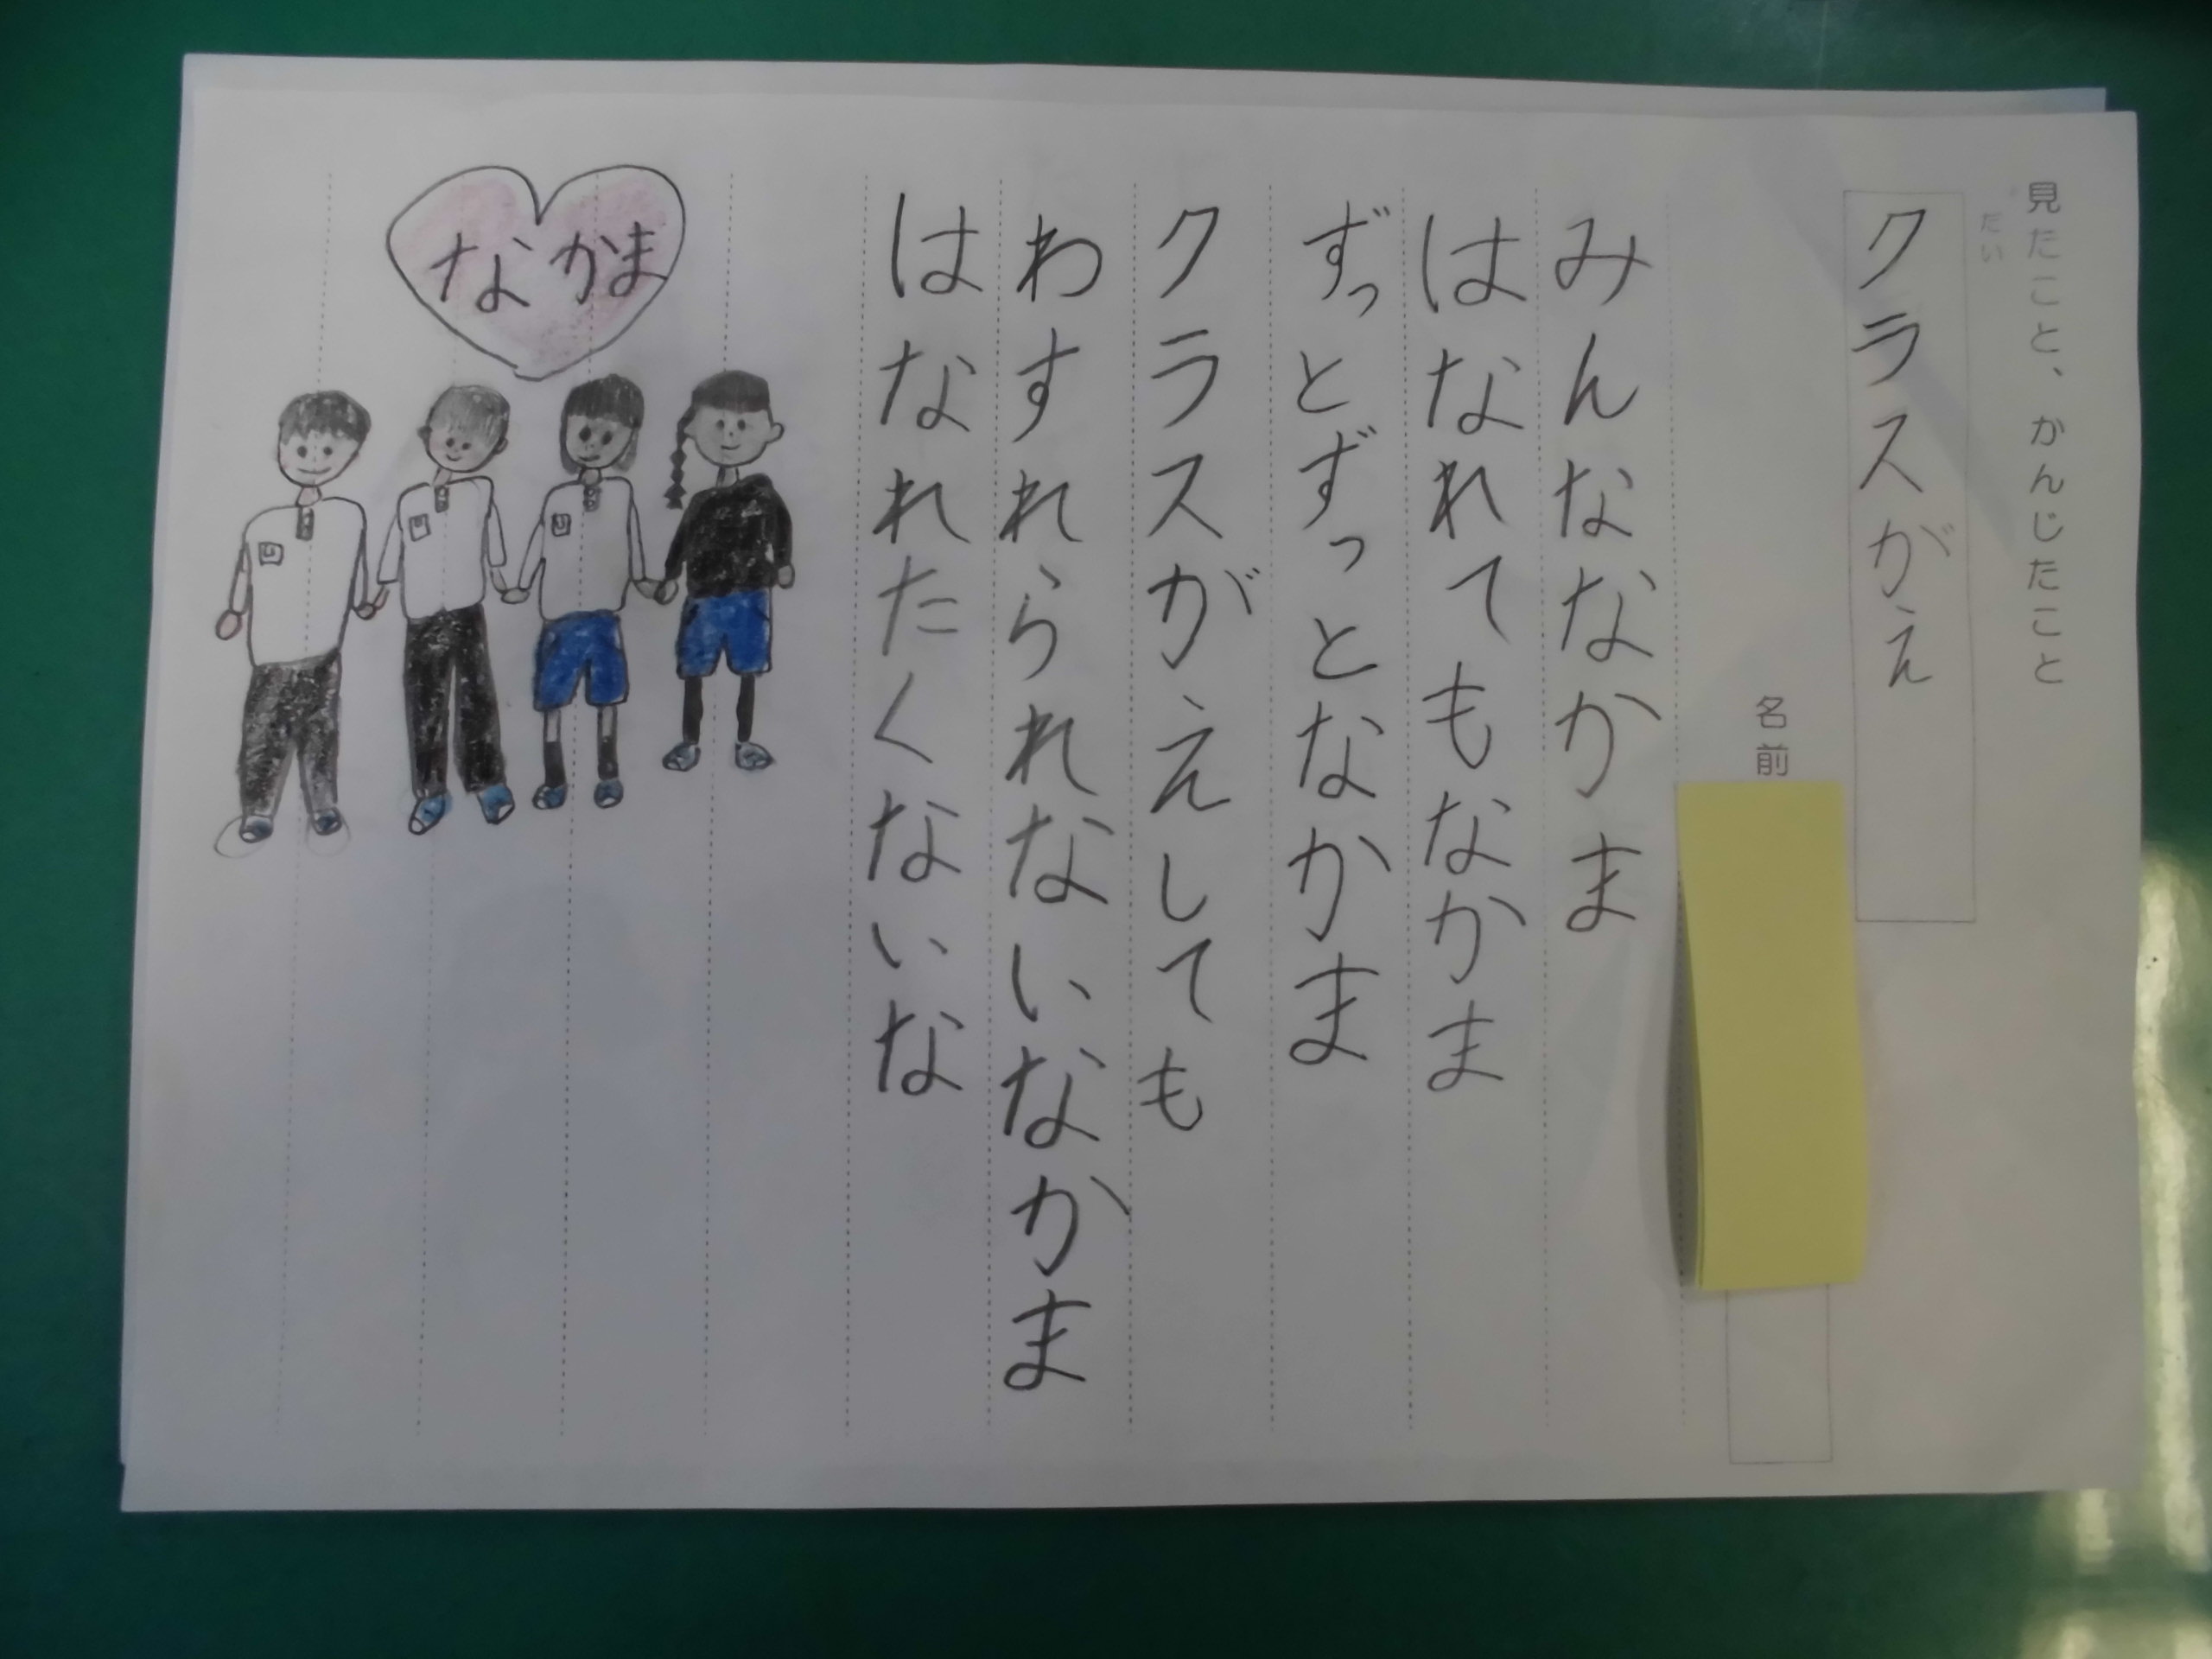 見たこと、かんじたこと
だい
クラスがえ
名前
みんななかま
はなれてもなかま
ずっとずっとなかま
クラスがえしても
わすれられないなかま
はなれたくないな
なかま